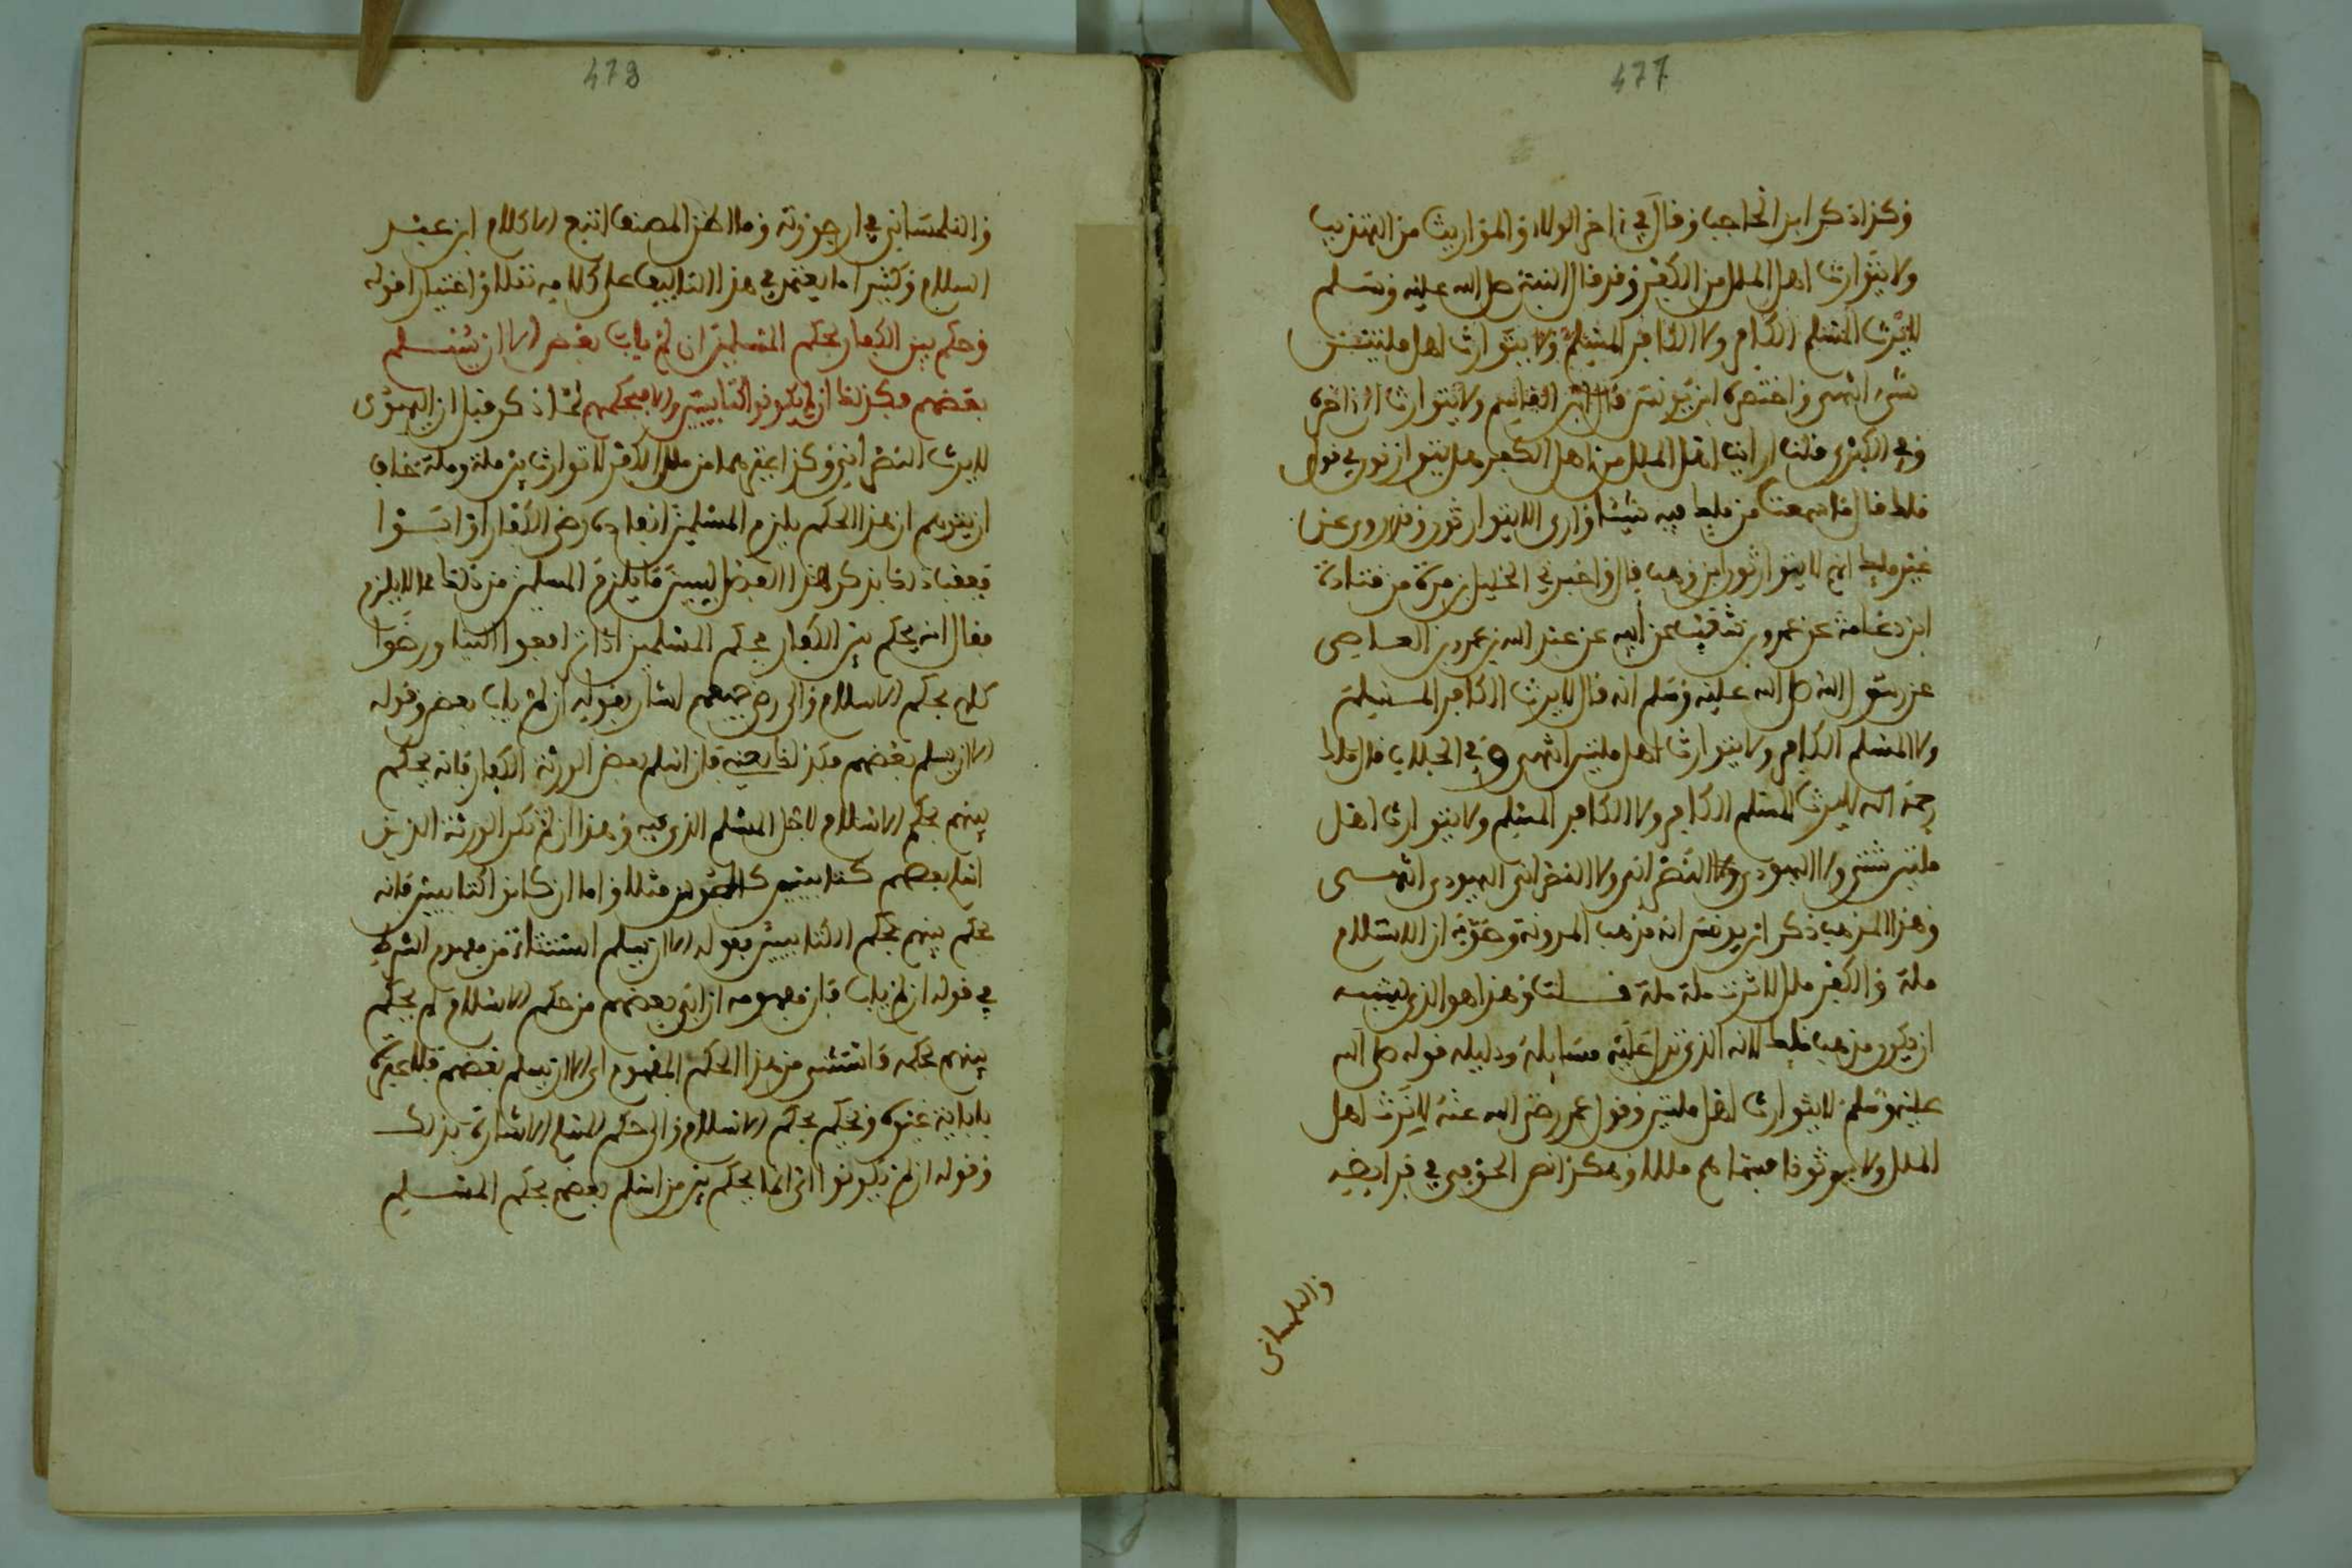 477
وكذا ذكر ابن الحاجب وقال في ءاخر الولاء والمواريث من التهذيب
ولا يتوارث اهل الملل من الكفر وقد قال النبي صلى الله عليه وسلم
لا يرث المسلم الكافر ولا الكافر المسلم ولا يتوارث اهل ملتين
شيء انتهى واختصره ابن يونس قال ابن القاسم ولا يتوارث الى اخره
وفي الكبرى قلت ارايت اهل الملل من اهل الكفر هل يتوارثون في قول
ملك قال ما سمعت من ملك فيه شيئا وارى الا يتوارثون وقد روي عن
غير ملك انهم لا يتوارثون ابن وهب قال واخبرني الخليل بن مرة عن قتادة
ابن دعامة عن عمرو بن شعيب عن ابيه عن عبد الله بن عمرو بن العاصي
عن رسول الله صلى الله عليه وسلم انه قال لا يرث الكافر المسلم
ولا المسلم الكافر ولا يتوارث اهل ملتين انتهى وفي الجلاب قال ملك
رحمه الله لا يرث المسلم الكافر ولا الكافر المسلم ولا يتوارث اهل
ملتين شتى ولا اليهودي النصراني ولا النصراني اليهودي انتهى
وهذا المذهب ذكر ابن يونس انه مذهب المدونة وصوبه ان الاسلام
ملة والكفر ملل لا ترث ملة ملة قلت وهذا هو الذي يشبه
ان يكون مذهب ملك لانه الذي تدل عليه مسايله ودليله قوله صلى الله
عليه وسلم لا يتوارث اهل ملتين وقول عمر رضي الله عنه لا نرث اهل
الملل ولا يرثونا فسماهم مللا وهكذا نص الحوفي في فرايضه
والتلمساني
478
والتلمساني في ارجوزته وما اظن المصنف اتبع الا كلام ابن عبد
السلام وكثيرا ما يعتمد في هذا التاليف على كلامه نقلا واختيارا قوله
وحكم بين الكفار بحكم المسلم ان لم ياب بعض الا ان يسلم
بعضهم فكذلك ان لم يكونوا كتابيين والا فبحكمهم لما ذكر قبل ان اليهودي
لا يرث النصراني وكذا غيرهما من ملل الكفر لا توارث بين ملة وملة خاف
ان يتوهم ان هذا الحكم يلزم المسلمين انفاذه رضي الكفار او ابوا
فعقب ذلك بذكر هذا الفصل ليبين ما يلزم المسلمين من ذلك مما لا يلزم
فقال انه يحكم بين الكفار بحكم المسلمين اذا ترافعوا الينا ورضوا
كلهم بحكم الاسلام والى رضى جميعهم اشار بقوله ان لم ياب بعض وقوله
الا ان يسلم بعضهم فكذلك يعني فان اسلم بعض الورثة الكفار فانه يحكم
بينهم بحكم الاسلام لاجل المسلم الذي فيه وهذا ان لم تكن الورثة الذين
اسلم بعضهم كتابيين كالمجوس مثلا واما ان كانوا كتابيين فانه
يحكم بينهم بحكم الكتابيين فقوله الا ان يسلم استثناء من مفهوم الشرط
في قوله ان لم ياب فان مفهومه ان ابى بعضهم من حكم الاسلام لم يحكم
بينهم بحكمه فاستثنى من هذا الحكم المفهوم اي الا ان يسلم بعضهم فلا عبرة
باباية غيره ويحكم بحكم الاسلام والى حكم المسلم الاشارة بذلك
وقوله ان لم يكونوا اي انما يحكم بين من اسلم بعضهم بحكم المسلم